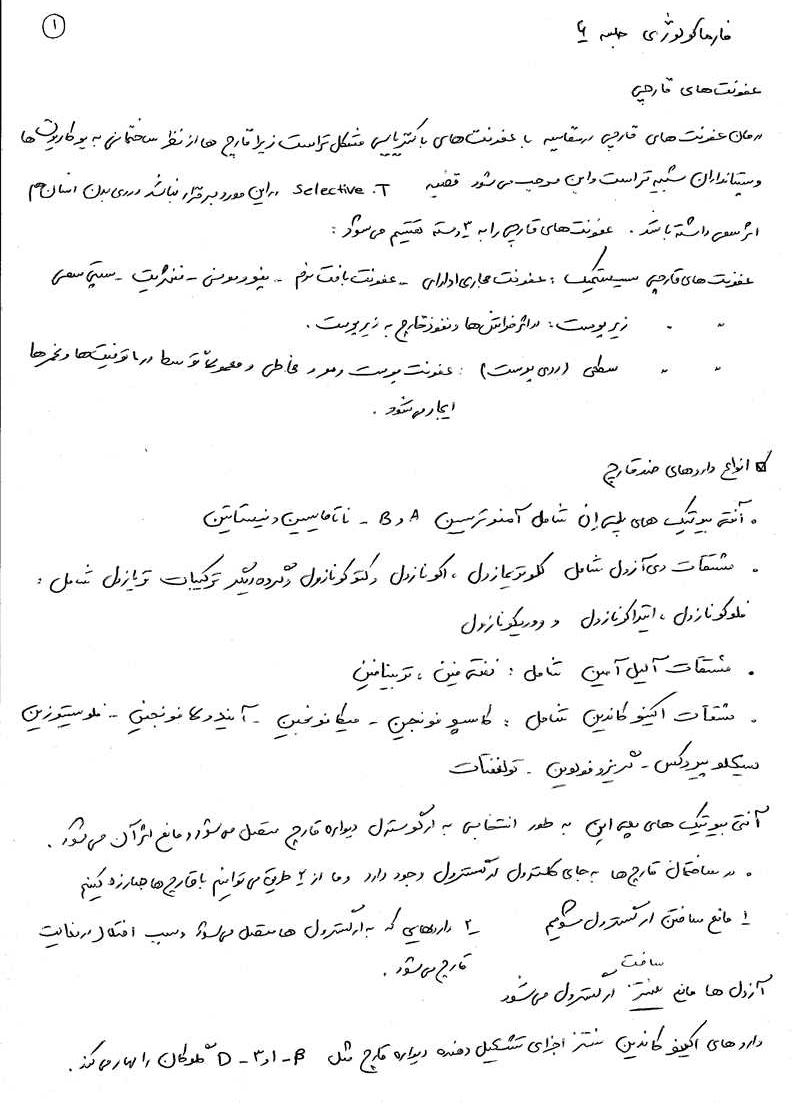 ۱
فارماکولوژی جلسه ۶
عفونت های قارچی
درمان عفونت های قارچی در مقایسه با عفونت های باکتریایی مشکل تر است زیرا قارچ ها از نظر ساختمانی به یوکاریوت ها
و پستانداران شبیه تر است و این موجب می شود قضیه Selective .T در این مورد برقرار نباشد و روی بدن انسان هم
اثر سمی داشته باشد . عفونت های قارچی را به ۳ دسته تقسیم می شود :
عفونت های قارچی سیستمیک : عفونت مجاری ادراری - عفونت بافت نرم - پنومونی - مننژیت - سپتی سمی
〃 〃 زیر پوست : در اثر خراش ها و نفوذ قارچ به زیر پوست .
〃 〃 سطحی (روی پوست) : عفونت پوست و مو و مخاطی و معمولاً توسط درماتوفیت ها و مخمرها
ایجاد می شود .
انواع داروهای ضد قارچ
• آنتی بیوتیک های پلی ان شامل آمفوتریسین A و B - ناتامایسین و نیستاتین
• مشتقات دی آزول شامل کلوتریمازول ، اکونازول و کتوکونازول و گروه دیگر ترکیبات تریازول شامل :
فلوکونازول ، ایتراکونازول و وریکونازول
• مشتقات آلیل آمین شامل : نفتی فین ، تربینافین
• مشتقات اکینوکاندین شامل : کاسپوفونجین - میکافونجین - آنیدولافونجین - فلوسیتوزین
سیکلوپیروکس - گریزوفولوین - تولنفتات
آنتی بیوتیک های پلی این به طور انتخابی به ارگوسترول دیواره قارچ متصل می شود و مانع اثر آن می شود .
• در ساختمان قارچ ها به جای کلسترول ارگسترول وجود دارد و ما از ۲ طریق می توانیم با قارچ ها مبارزه کنیم
۱ مانع ساختن ارگسترول شویم ۲ داروهایی که به ارگسترول ها متصل می شود و سبب اختلال در فعالیت
قارچ می شود .
ساخت
آزول ها مانع سنتز ارگسترول می شود
داروهای اکینوکاندین سنتز اجزای تشکیل دهنده دیواره قارچ مثل β - ۱و۳ - D گلوکان را مهار می کند .